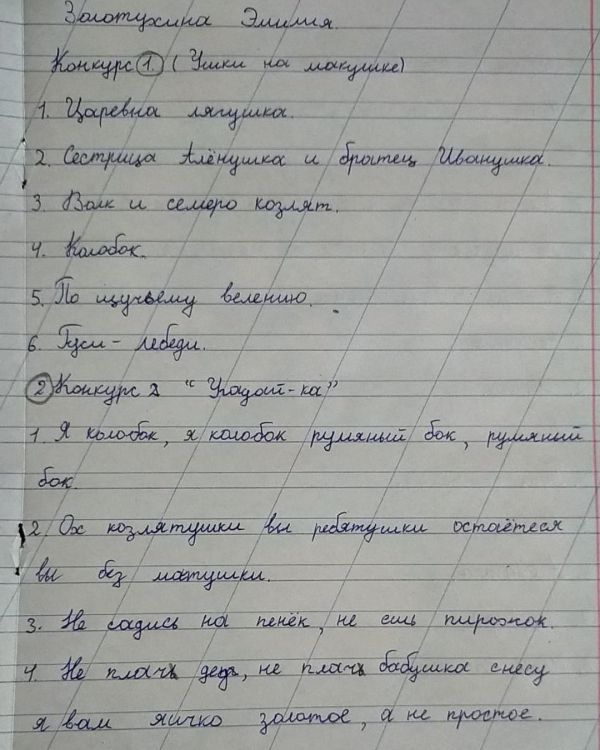 Золотухина Эмилия.
Конкурс 1. (Ушки на макушке)
1. Царевна лягушка.
2. Сестрица Алёнушка и братец Иванушка.
3. Волк и семеро козлят.
4. Колобок.
5. По щучьему велению.
6. Гуси - лебеди.
2 Конкурс 2 "Угадай-ка"
1. Я колобок, я колобок румяный бок, румяный
бок.
2. Ох козлятушки вы ребятушки остаётеся
вы без матушки.
3. Не садись на пенёк, не ешь пирожок.
4. Не плачь дедь, не плачь бабушка снесу
я вам яичко золотое, а не простое.